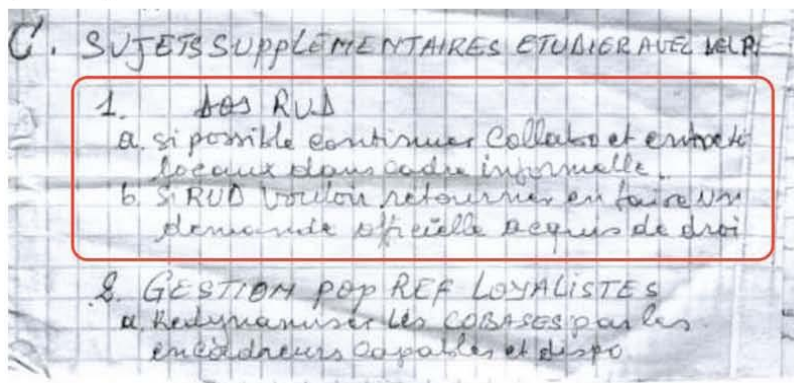 C. SUJETS SUPPLÉMENTAIRES ETUDIER AVEC DELP.
1. DOS RUD
a. si possible continuer Collabo et entrete
locaux dans cadre informelle.
b. Si RUD vouloir retourner en faire un
demande officielle acquis de droi
2. GESTION POP REF LOYALISTES
a. Redynamiser les COBASES par les
encadreurs capables et dispo